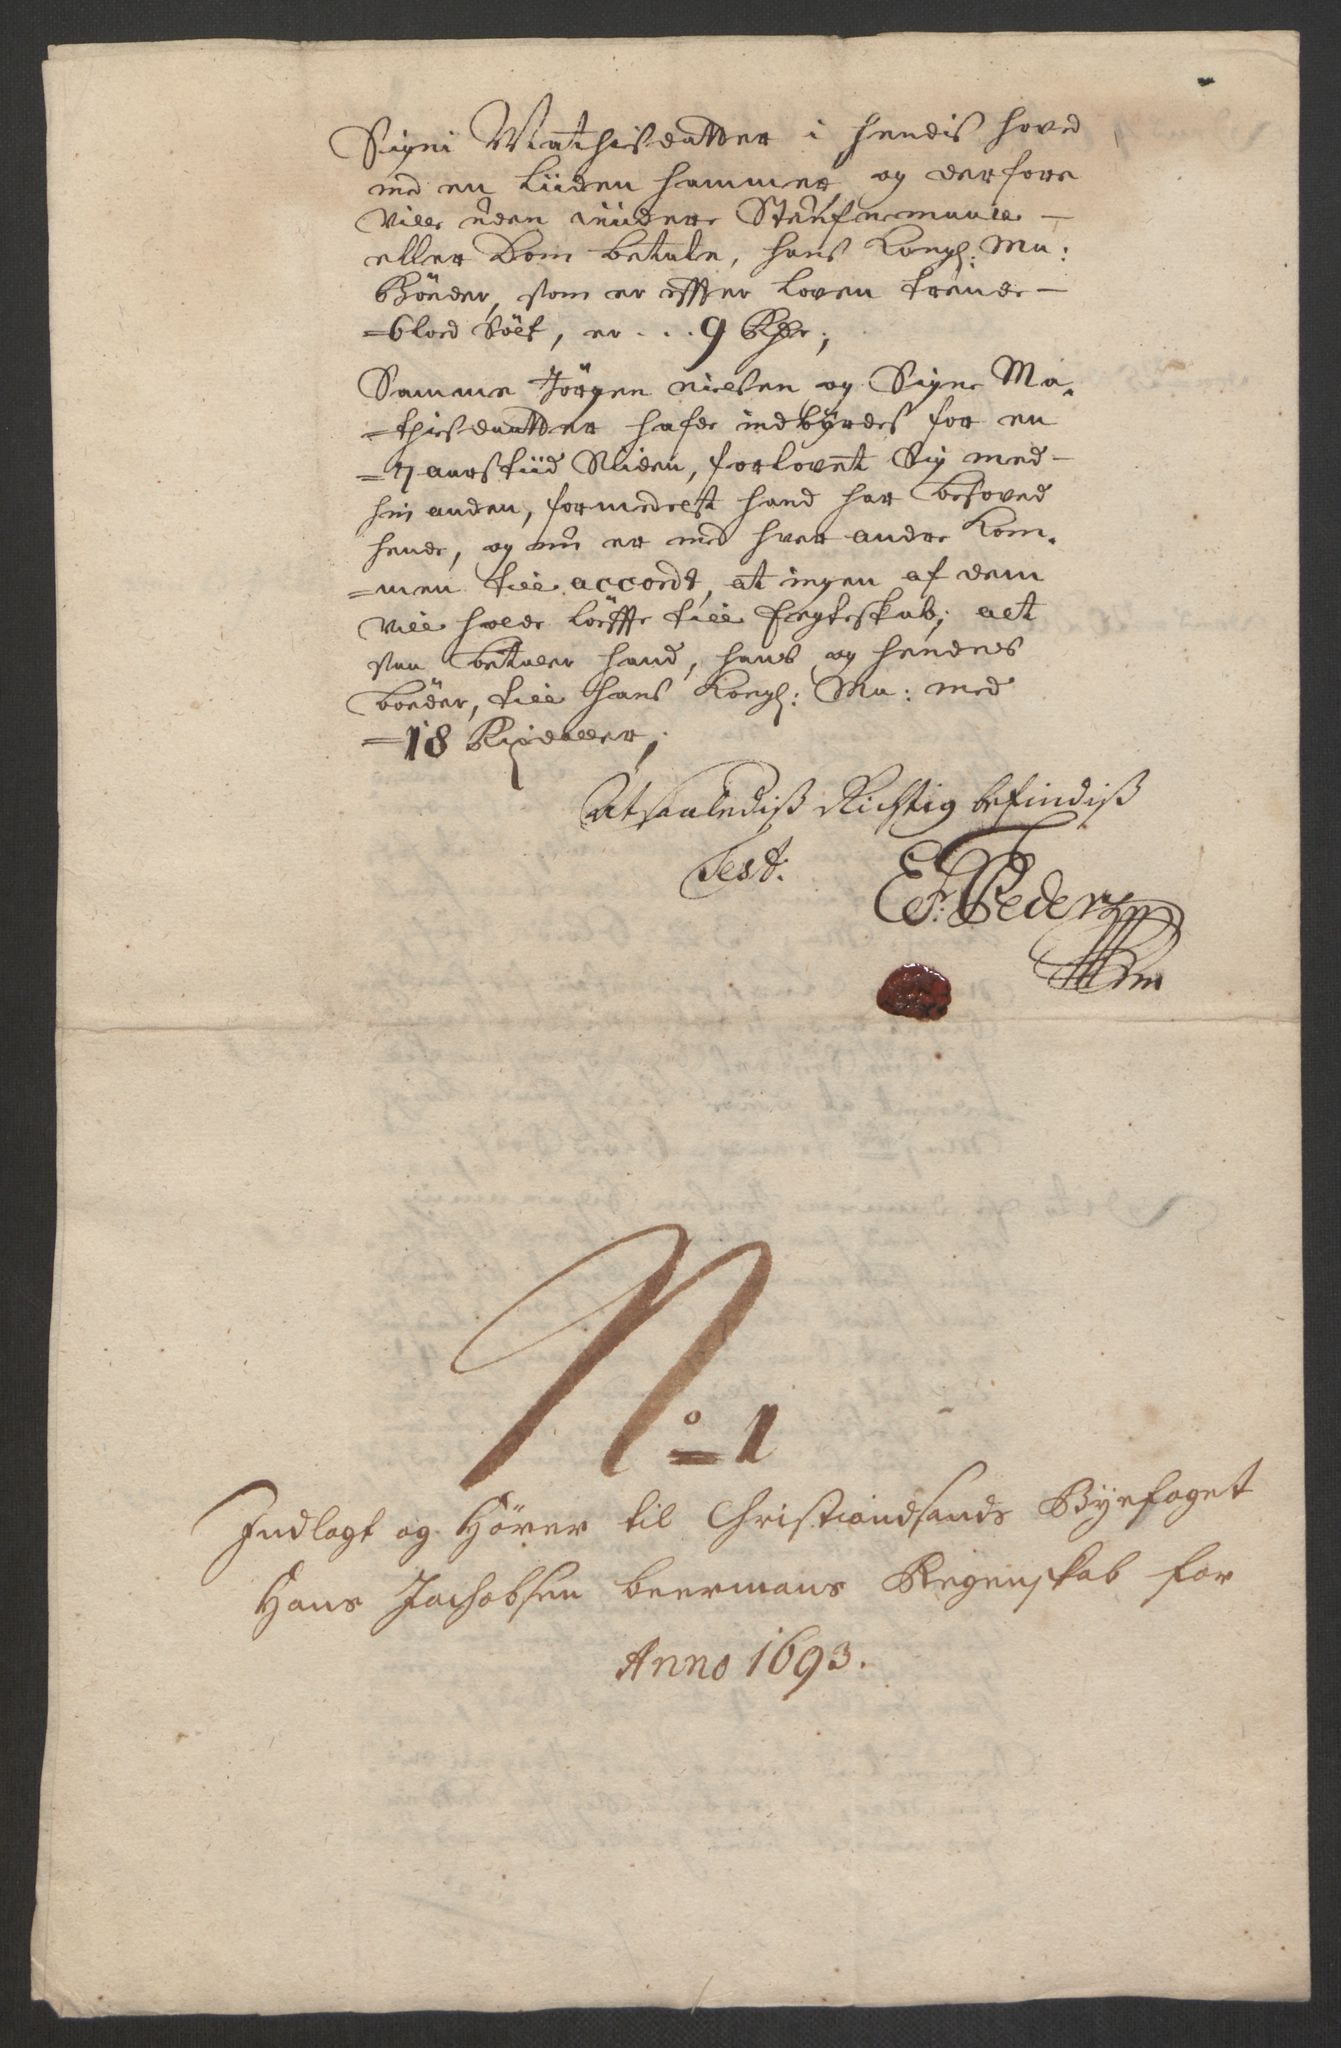 Signi Mathisdatter i hendis hoved
med en liiden hammer, og derfore
Ville uden videre Steufnemaall
eller Dom betale, hans Kongl: Ma:
Böeder, som er effter loven trende
=blod Söll, er . . . 9 Rdr;
Samme Jörgen nielsen og Signe Ma,
=thisdaatter hafde indbÿrdes for en
=7 aars tiid Siden, forlovet Sig med
hin anden, formedelst hand har besoved
hende, og nu er med hver andre Kom,
=men till accordt, at ingen af dem
vill holde löffte till Egteskab; alt
saa betaler hand, hans og hendes
böeder, till hans Kongl: Ma: med
=18 Rixdaller;
At saalediß Richtig befindiß
Test.
E: Pederszn
No 1
Indlagt og Hörer til Christiandsands Bÿefoget
Hans Jachobsen beermans Regenskab for
Anno 1693.